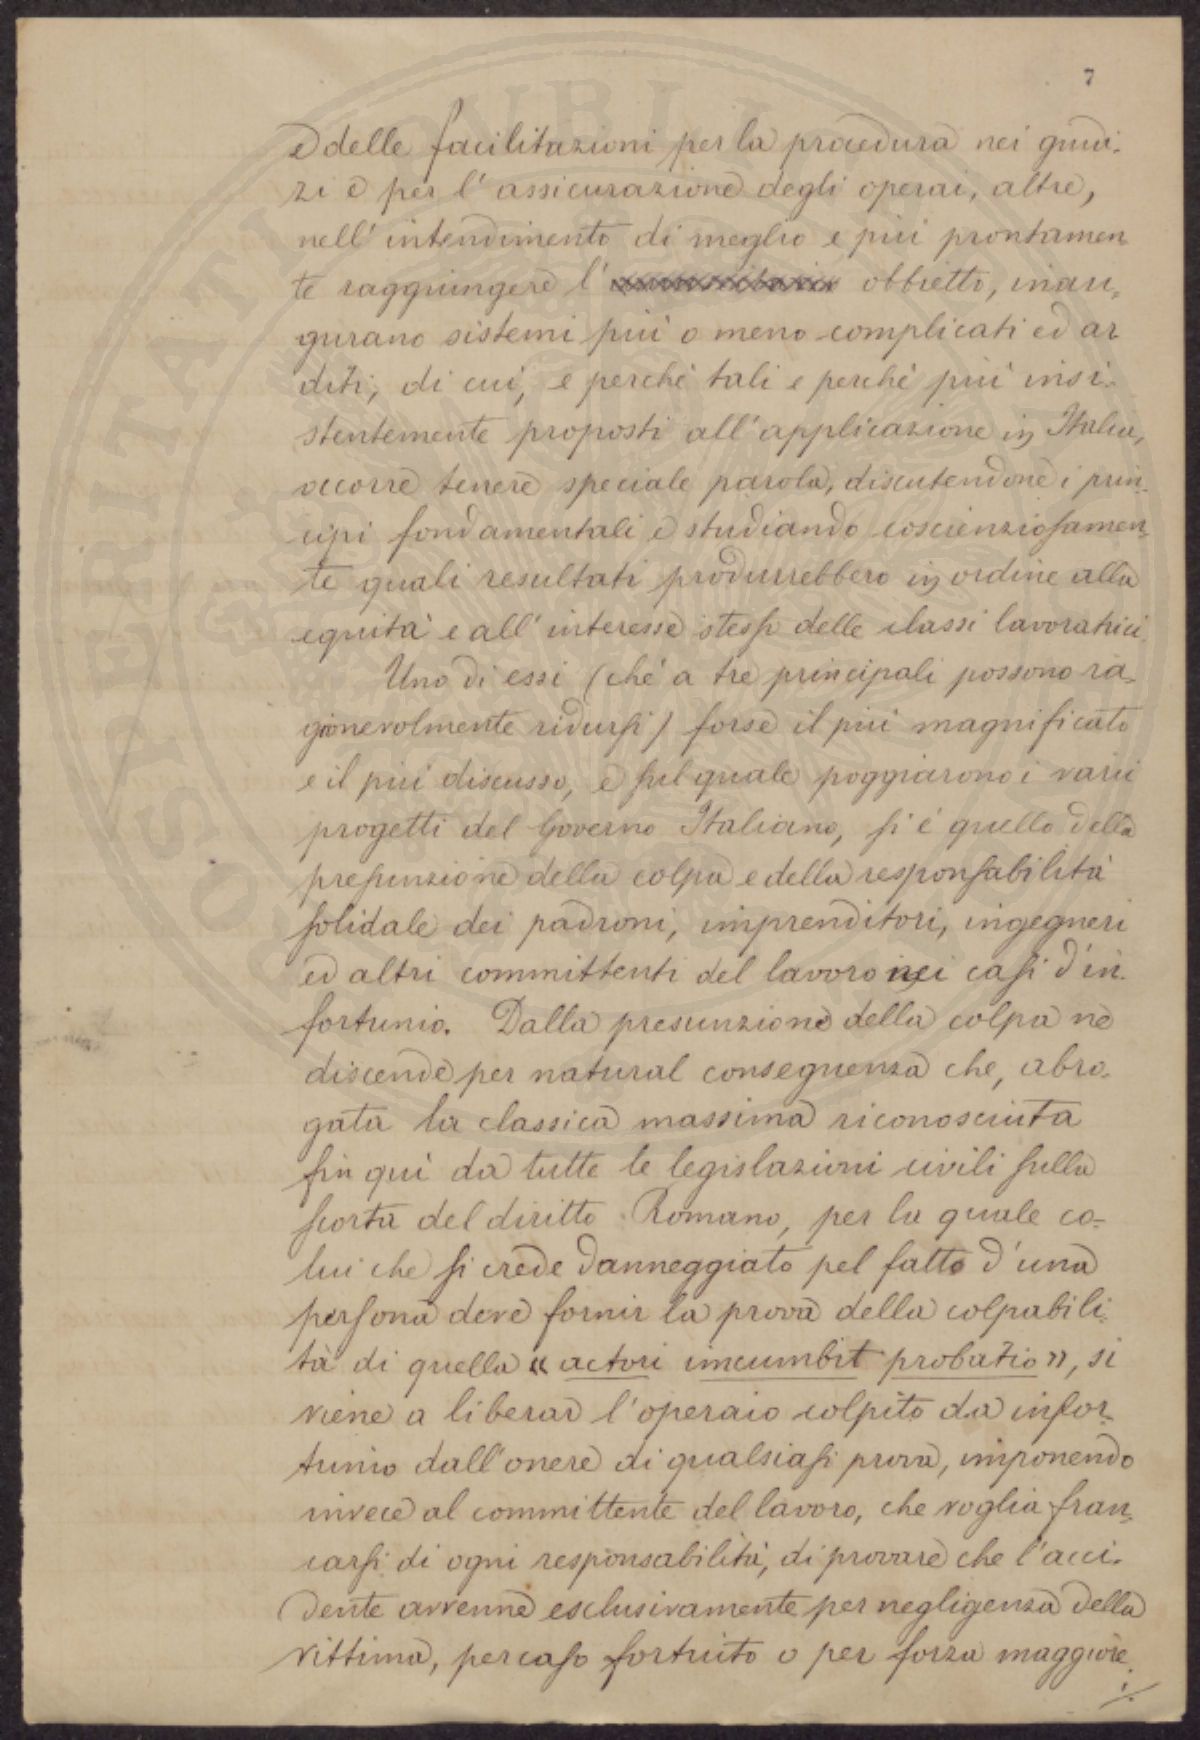 7
e delle facilitazioni per la procedura nei giudi-
zi e per l'assicurazione degli operai, altre,
nell'intendimento di meglio e più prontamen-
te raggiungere l' obbietto, inau-
gurano sistemi più o meno complicati ed ar
diti, di cui, e perché tali e perché più insi-
stentemente proposti all'applicazione in Italia,
occorre tenere speciale parola, discutendone i prin-
cipi fondamentali e studiando coscienziosamen-
te quali resultati produrrebbero in ordine alla
equità e all'interesse stesso delle classi lavoratrici.
Uno di essi (ché a tre principali possono ra-
gionevolmente ridursi) forse il più magnificato
e il più discusso, e sul quale poggiarono i varii
progetti del Governo Italiano, si è quello della
presunzione della colpa e della responsabilità
solidale dei padroni, imprenditori, ingegneri
ed altri committenti del lavoro nei casi d'in-
fortunio. Dalla presunzione della colpa ne
discende per natural conseguenza che, abro-
gata la classica massima riconosciuta
fin qui da tutte le legislazioni civili sulla
scorta del diritto Romano, per la quale co-
lui che si crede danneggiato pel fatto d'una
persona deve fornir la prova della colpabili-
tà di quella « actori incumbit probatio », si
viene a liberar l'operaio colpito da infor-
tunio dall'onere di qualsiasi prova, imponendo
invece al committente del lavoro, che voglia fran-
carsi di ogni responsabilità, di provare che l'acci-
dente avvenne esclusivamente per negligenza della
vittima, per caso fortuito o per forza maggiore.
PROSPERITATI PUBLICAE